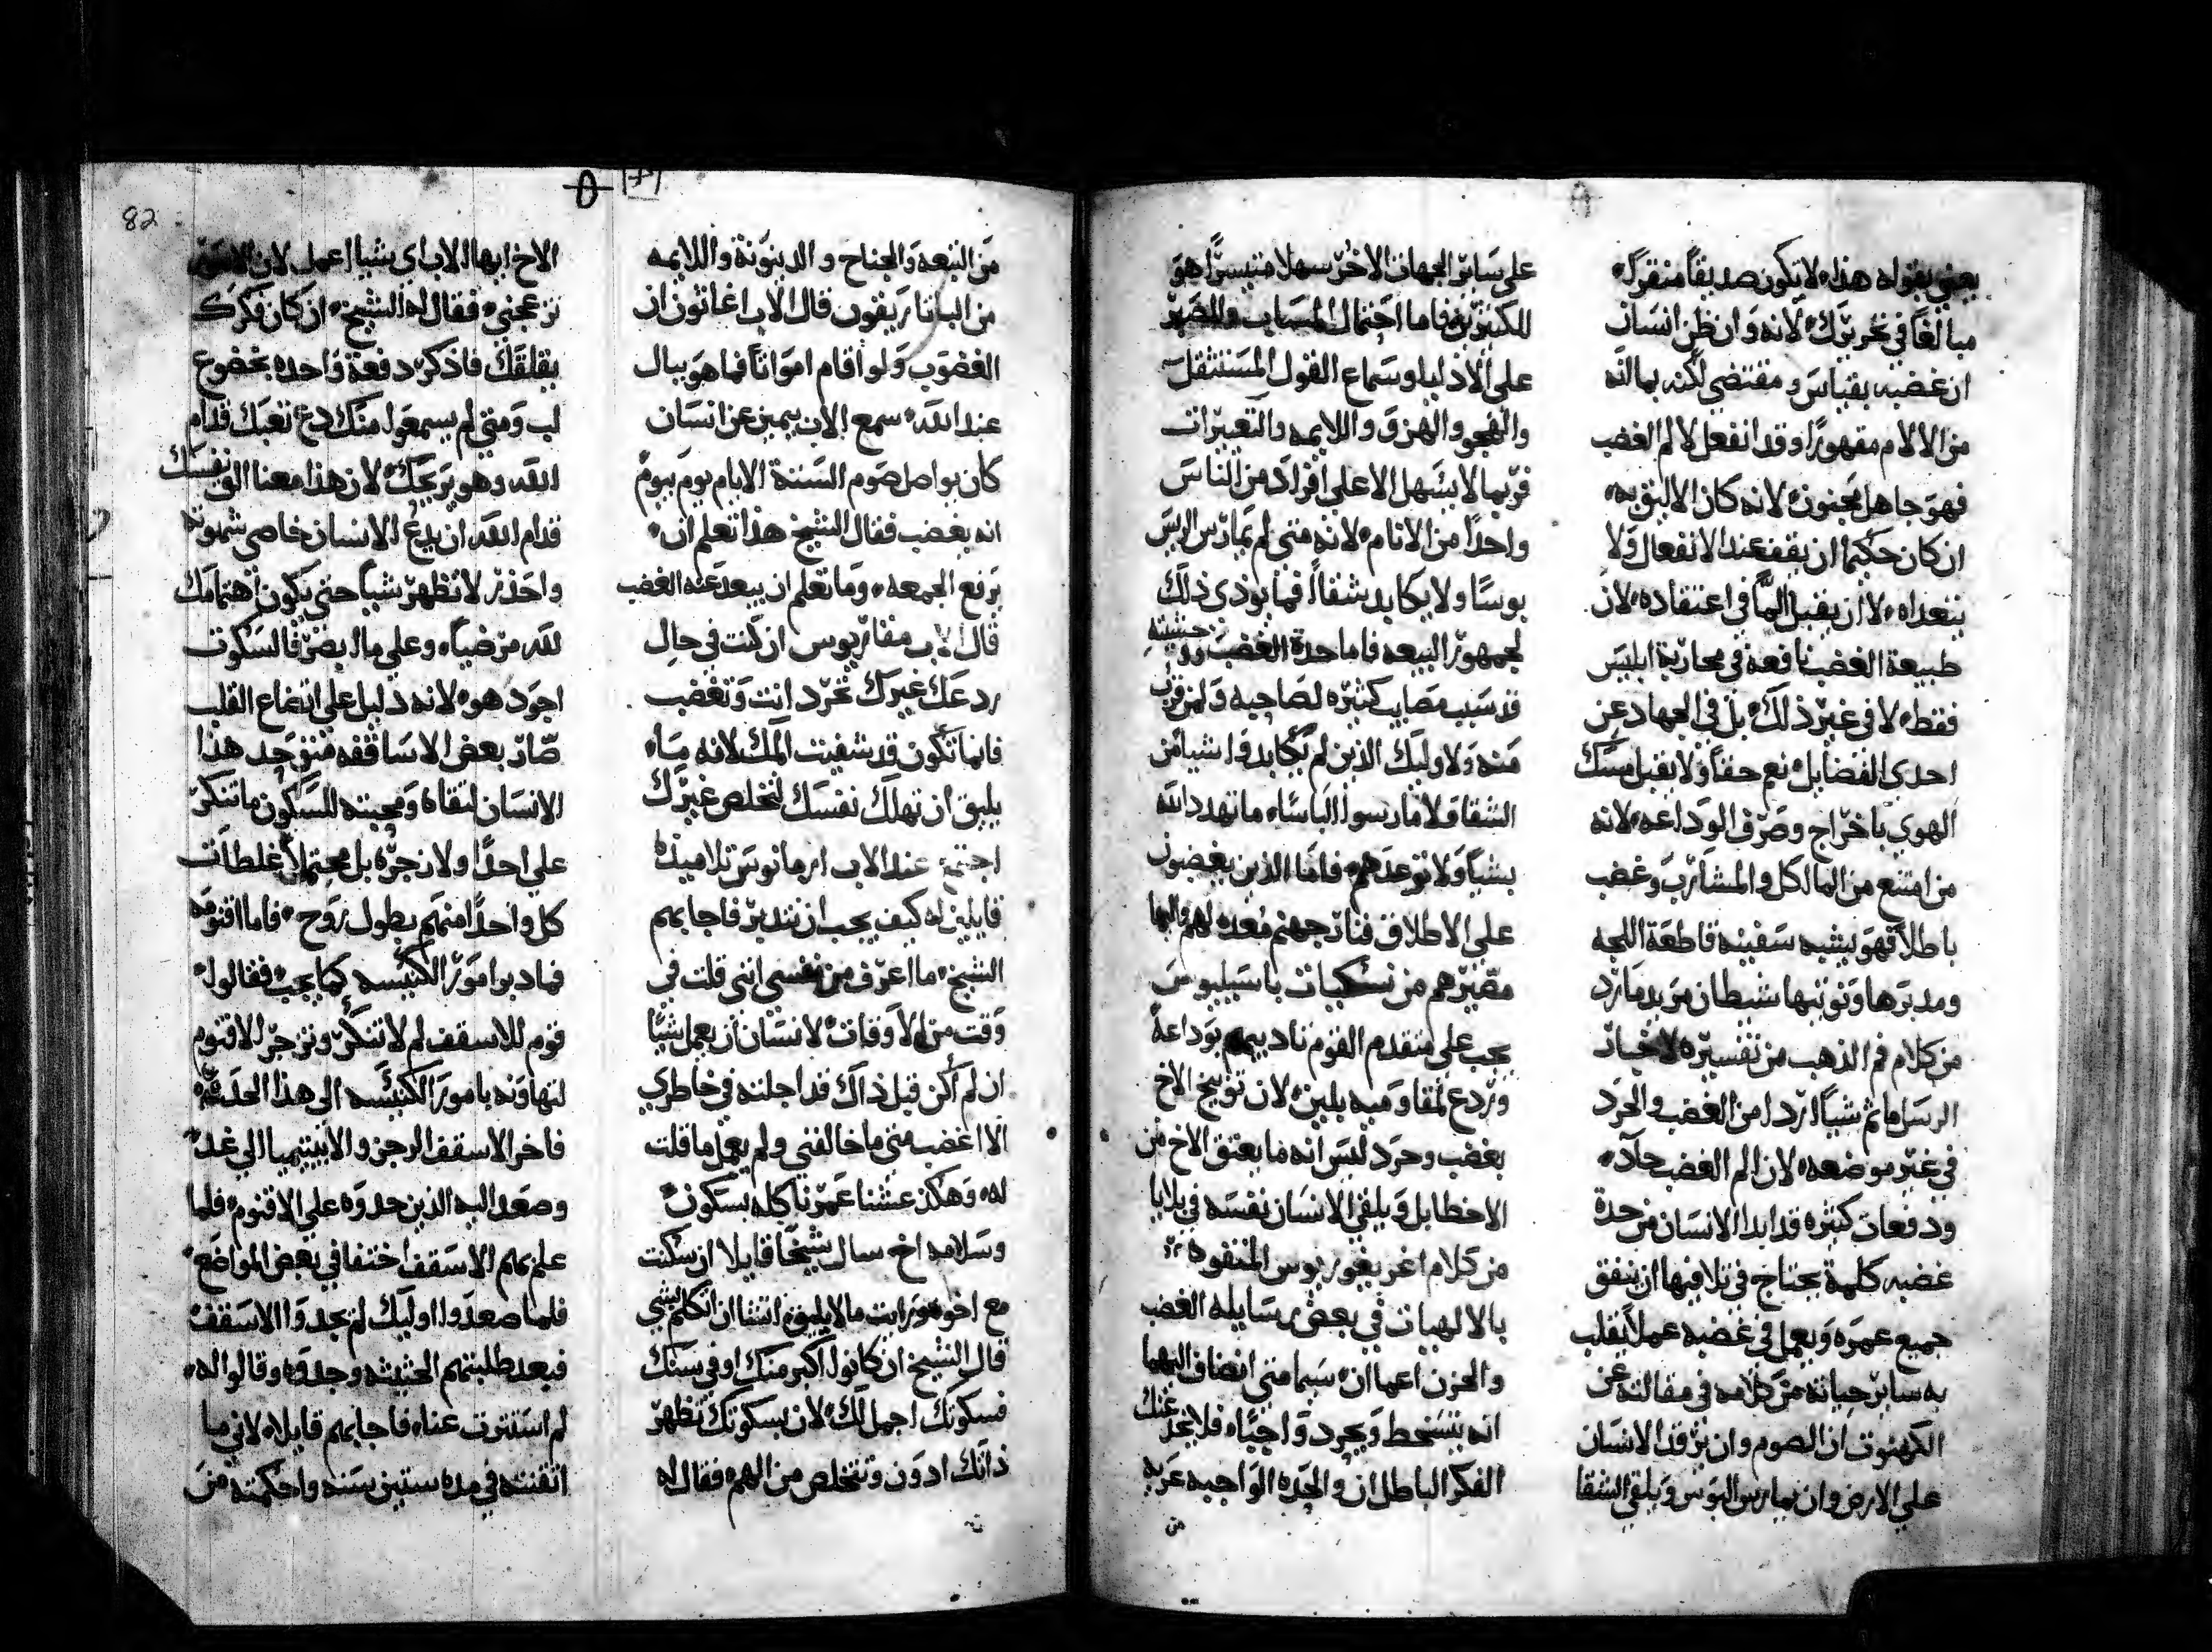 يعني بقوله هذا لا تكون صديقاً منقرلاً
مبالغاً في تحريرك لانه وان ظن انسان
ان غضبه بقياس ومقتضي لكنه بما انه
من الالام مقهوراً وقد انفعل لالم الغضب
فهو جاهل مجنون لانه كان الاليق به
ان كان حكيما ان يقف عند الانفعال ولا
يتعداه لا ان يقبل الماً في اعتقاده لان
طبيعة الغضب نافعة في محاربة ابليس
فقط لا في غير ذلك بل في الجهاد عن
احدي الفضايل نعم حقاً ولا يقبل منك
الهوي باخراج وصرف الوداعه لانه
من امتنع من المآكل والمشارب وغضب
باطلاً فهو يشبه سفينه قاطعة اللجه
ومدبرها ونوتيها شيطان مريد مارد
من كلام فم الذهب من تفسيره لاخبار
الرسل ما ثم شياً اردا من الغضب والحرد
في غير موضعه لان الم الغضب حاد
ودفعات كثيره قد ابدا الانسان من حدة
غضبه كلمة يحتاج في تلافيها ان ينفق
جميع عمره ويعمل في غضبه عملاً يقلب
به ساير حياته من كلامه في مقالته عن
الكهنوت ان الصوم وان يرقد الانسان
علي الارض وان يمارس البوس ويلقي الشقا
علي ساير الجهات الاخر سهلا متيسراً هو
للكثيرين فاما احتمال المسايب والصبر
علي الاذليل وسماع القول المستثقل
والهجو والهزو واللايمه والتعييرات
فربما لا يسهل الا علي افراد من الناس
واحداً من الانام لانه متي لم يمارس الريس
بوسًا ولا يكابد شقاً فما يوذي ذلك
لجمهور البيعه فاما حدة الغضب ووحشيته
قد سبب مصايب كثيره لصاحبه ولمن قرب
منه ولاوليك الذين لم يكابدوا شيا من
الشقا ولا مارسوا الباساء ما تهدد الله
بشياً ولا توعدهم فاما الذين يغضبون
علي الاطلاق فنار جهنم معده لهم والها
مصيرهم من نسكيات باسيليوس
يجب علي متقدم القوم تاديبهم بوداعة
وردع لمقاوميه بلين لان توبيخ الاخ
بغضب وحرد ليس انه ما يعتق الاخ من
الاخطا بل ويلقي الانسان نفسه في بلايا
من كلام اغريغوريوس المتفوه
بالالهيات في بعض رسايله الغضب
والحزن اعما ان سيما متي انضاف اليهما
انه يتسخط ويحرد واجباً فلا تخد عنك
الفكر الباطل ان والحده الواجبه عريه
من
من التبعه والجناح والدينونة واللايمه
من الباتاريقون قال الاب اغاثون ان
الغضوب ولو اقام امواتاً فما هو ببال
عند الله سمع الاب بيمين عن انسان
كان يواصل صوم الستة الايام يوم بيوم
انه يغضب فقال الشيخ هذا تعلم ان
يرفع الجمعه وما تعلم ان يبعد عنه الغضب
قال الاب مقاريوس ان كنت في حال
ردعك غيرك تحرد انت وتغضب
فانما تكون قد شفيت المك لانه ماء
يليق ان تهلك نفسك لتخلص غيرك
اجتمع عند الاب ايرمانوس تلاميذه
قايلين له كيف يجب ان نتدبر فاجابهم
الشيخ ما اعرف من نفسي انني قلت في
وقت من الاوقات لانسان ان يعمل شيًا
ان لم اكن قبل ذاك قد اجلته في خاطري
الا اغضب متي ما خالفني ولم يعمل ما قلت
له وهكذ عشنا عمرنا كله بسكون
وسلامه اخ سال شيخًا قايلا ان سكنت
مع اخوه ورايت ما لا يليق اتشا ان اتكلم بشي
قال الشيخ ان كانوا اكبر منك او في سنك
فسكوتك اجمل لك لان بسكوتك تظهر
ذاتك ادون وتتخلص من الهم فقال له
82
الاخ ايها الاب اي شيا اعمل لان
تزعجني فقال له الشيخ ان كان فكرك
يقلقك فاذكر دفعة واحده بخضوع
لب ومتي لم يسمعوا منك دع تعبك قدام
الله وهو يريحك لان هذا معنا القي نفسك
قدام الله ان يدع الانسان خاصي شهوته
واحذر لا تظهر شياً حتي يكون اهتمامك
لله مرضياً وعلي ما ابصر فالسكوت
اجود هو لانه دليل علي اتضاع القلب
صار بعض الاساقفه متوحد هذا
الانسان لتقاه ومحبته للسكون ما تنكر
علي احداً ولا زجره بل محتملاً غلطات
كل واحداً منهم بطول روح فاما اقنومه
فما دبر امور الكنيسه كما يجب فقالوا
قوم للاسقف لم لا تتنكر وتزجر للاقنوم
لتهاونه بامور الكنيسه الي هذا الحد عنه
فاخر الاسقف الرجز والابيتيميا الي غد
وصعد اليه الذين حدوه علي الاقنوم فلما
علم بهم الاسقف اختفا في بعض المواضع
فلما صعدوا اوليك لم يجدوا الاسقف
فبعد طلبتهم الحثيثه وجدوه وقالوا له
لم استترت عنا فاجابهم قايلا لاني ما
اتقنته في مده ستين سنه واحكمته من